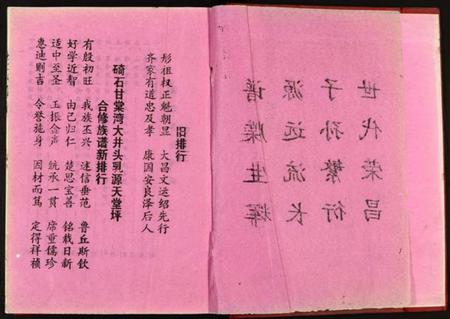 世代荣昌
子孙繁衍
源远流长
谱牒生辉
旧排行
彤祖权正魁朝显 大昌文运绍先行
齐家有道忠及孝 康国安良泽后人
碕石甘棠湾大井头乳源天堂坪
合修族谱新排行
有殷初旺 我族丕兴 述信垂范 鲁丘斯钦
好学近智 由己归仁 楚思宝善 铭载日新
适中至圣 玉振金声 统承一贯 席重儒珍
惠迪则吉 令誉施身 因材而笃 定得祥祯